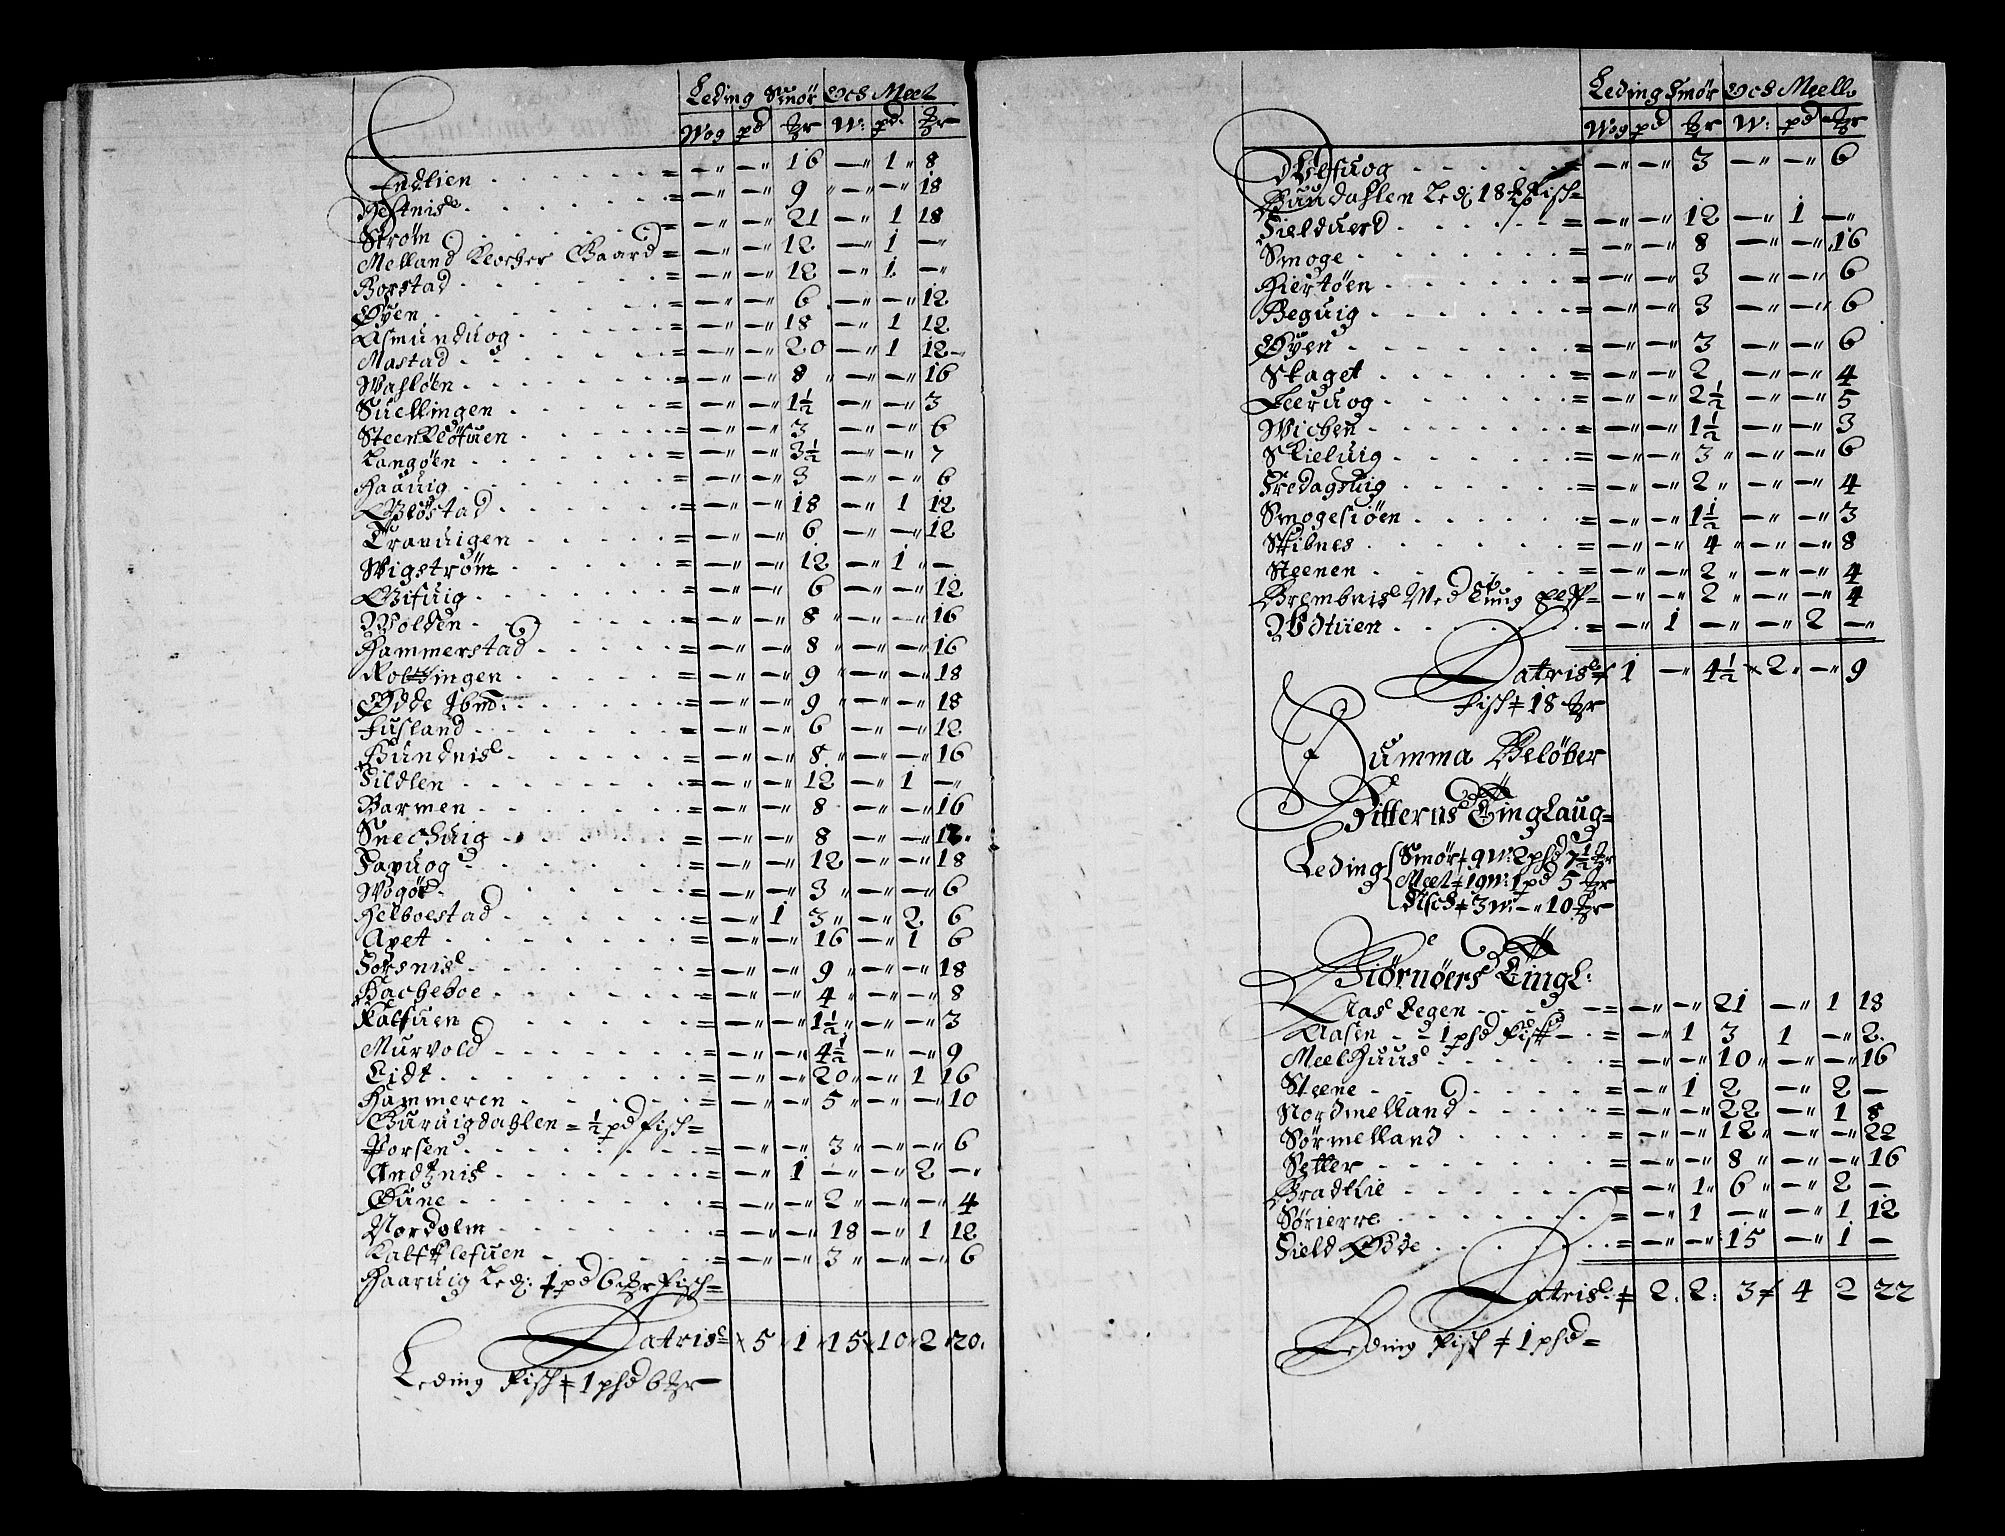 Leding Smör Och Meel
Wog pd ℔r W: pd. ℔r
Indlien = — — 16 — 1 8
Hestnis = — — 9 — — 18
Ström = — — 21 — 1 18
Melland Klocher Gaard = — — 12 — 1 —
Borstad = — — 12 — 1 —
Öyen = — — 6 — — 12
Asmunduog = — — 18 — 1 12
Mastad = — — 20 — 1 12
Wahlöen = — — 8 — — 16
Suellingen = — — 1½ — — 3
Steenklöfuen = — — 3 — — 6
Langöen = — — 3½ — — 7
Haauig = — — 3 — — 6
Ulöstad = — — 18 — 1 12
Tranuigen = — — 6 — — 12
Wigström = — — 12 — 1 —
Ulfuig = — — 6 — — 12
Wolden = — — 8 — — 16
Hammerstad = — — 8 — — 16
Rottingen = — — 9 — — 18
Ödde Ibm: = — — 9 — — 18
Fusland = — — 6 — — 12
Gundnis = — — 8 — — 16
Fildlen = — — 12 — 1 —
Barmen = — — 8 — — 16
Snechuig = — — 8 — — 12
Fauuog = — — 12 — — 18
Wogör = — — 3 — — 6
Helboestad = — 1 3 — 2 6
Auet = — — 16 — 1 6
Forsnis = — — 9 — — 18
Hacheboe = — — 4 — — 8
Kalfuen = — — 1½ — — 3
Murvold = — — 4½ — — 9
Eidt = — — 20 — 1 16
Hammeren = — — 5 — — 10
Buruigdahlen = ½ pd fisch =
Porsen = — — 3 — — 6
Andtznis = — 1 — — 2 —
Tune = — — 2 — — 4
Nordolm = — — 18 — 1 12
Kalfklefuen = — — 3 — — 6
Haaruig Led: 1 pd 6 ℔r fisch =
Latris 5 1 15 10 2 20
Leding Fisch = 1 phd 6 ℔r
Leding Smör Och Meell
Wog pd ℔r W: pd ℔r
Ulfuog = — — 3 — — 6
Sundahlen Led: 18 ℔r Fisch =
Fielduerd = — — 12 — 1 —
Smoge = — — 8 — — 16
Hiertöen = — — 3 — — 6
Beguig = — — 3 — — 6
Öyen = — — 3 — — 6
Skaget = — — 2 — — 4
Leeruog = — — 2½ — — 5
Wichen = — — 1½ — — 3
Skieluig = — — 3 — — 6
Fredagsuig = — — 2 — — 4
Smogesiöen = — — 1½ — — 3
Skibnes = — — 4 — — 8
Steenen = — — 2 — — 4
Brembnis Med = — — 2 — — 4
Udtuen = — 1 — — 2 —
Latris 1 — 4½ 2 — 9
Fisch = 18 ℔r
Summa Belöber
Hitterns Tinglaug =
Leding { Smör = 9 W: 2 phd 7½ ℔r
Meel = 19 W: 1 pd 5 ℔r
Fisch = 3 W: — 10 ℔r
Biörnöers Tingl:
Aas Legen = — — 21 — 1 18
Aasen — 1 phd Fisk — 1 3 1 — 2
Meelhuus = — — 10 — — 16
Steene = — 1 2 — 2 —
Nordmelland = — — 22 — 1 8
Sörmelland = — — 12 — — 22
Setter = — — 8 — — 16
Bradtlie = — 1 6 — 2 —
Sörierre = — 1 — — 1 12
Field Ödde = — — 15 — 1 —
Latris = 2 2 3 4 2 22
Leding Fisch = 1 phd =